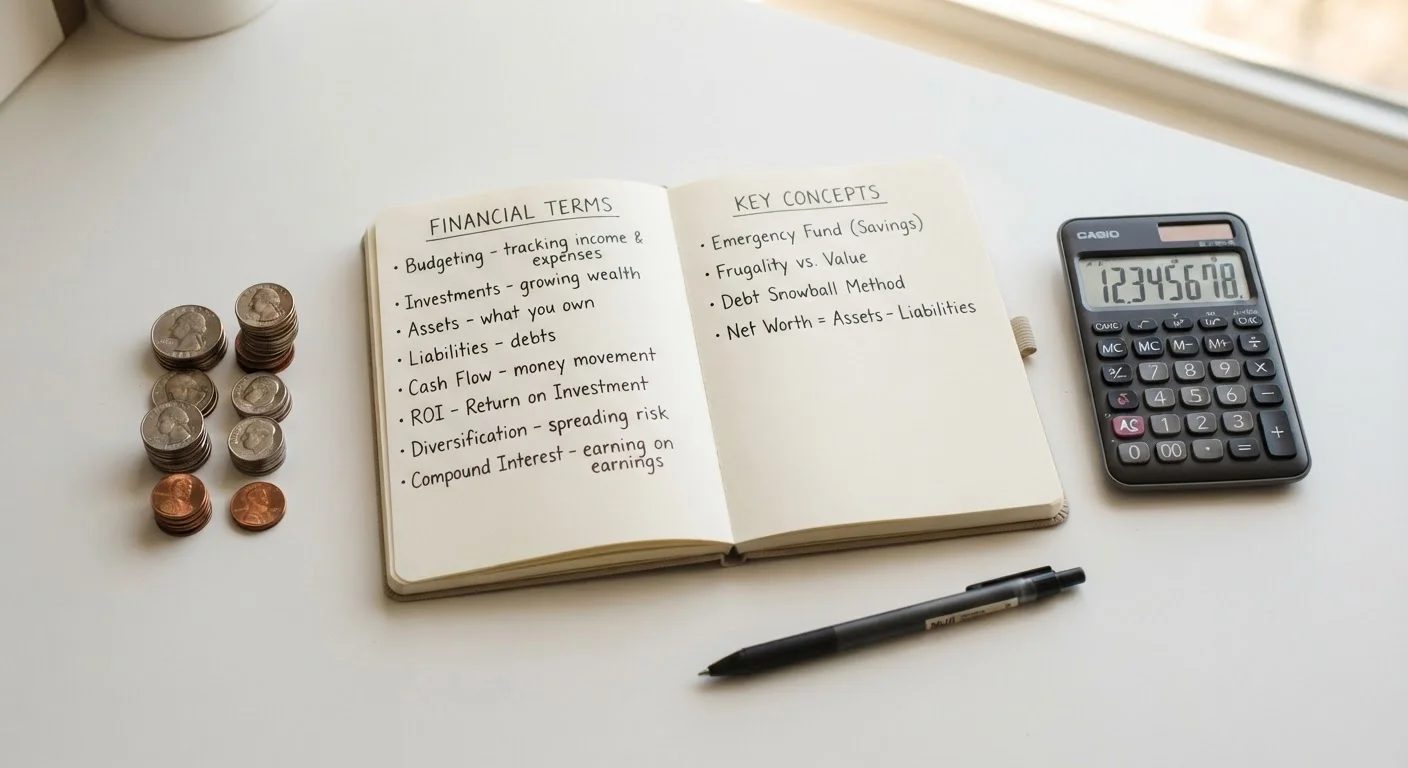 FINANCIAL TERMS
• Budgeting – tracking income &
expenses
• Investments – growing wealth
• Assets – what you own
• Liabilities – debts
• Cash Flow – money movement
• ROI – Return on Investment
• Diversification – spreading risk
• Compound Interest – earning on
earnings
KEY CONCEPTS
• Emergency Fund (Savings)
• Frugality vs. Value
• Debt Snowball Method
• Net Worth = Assets – Liabilities
CASIO
12345678.
MC MC M- M+ ÷
7 8 9 X
4 5 6 -
AC 1 2 3 +
0 00 · =